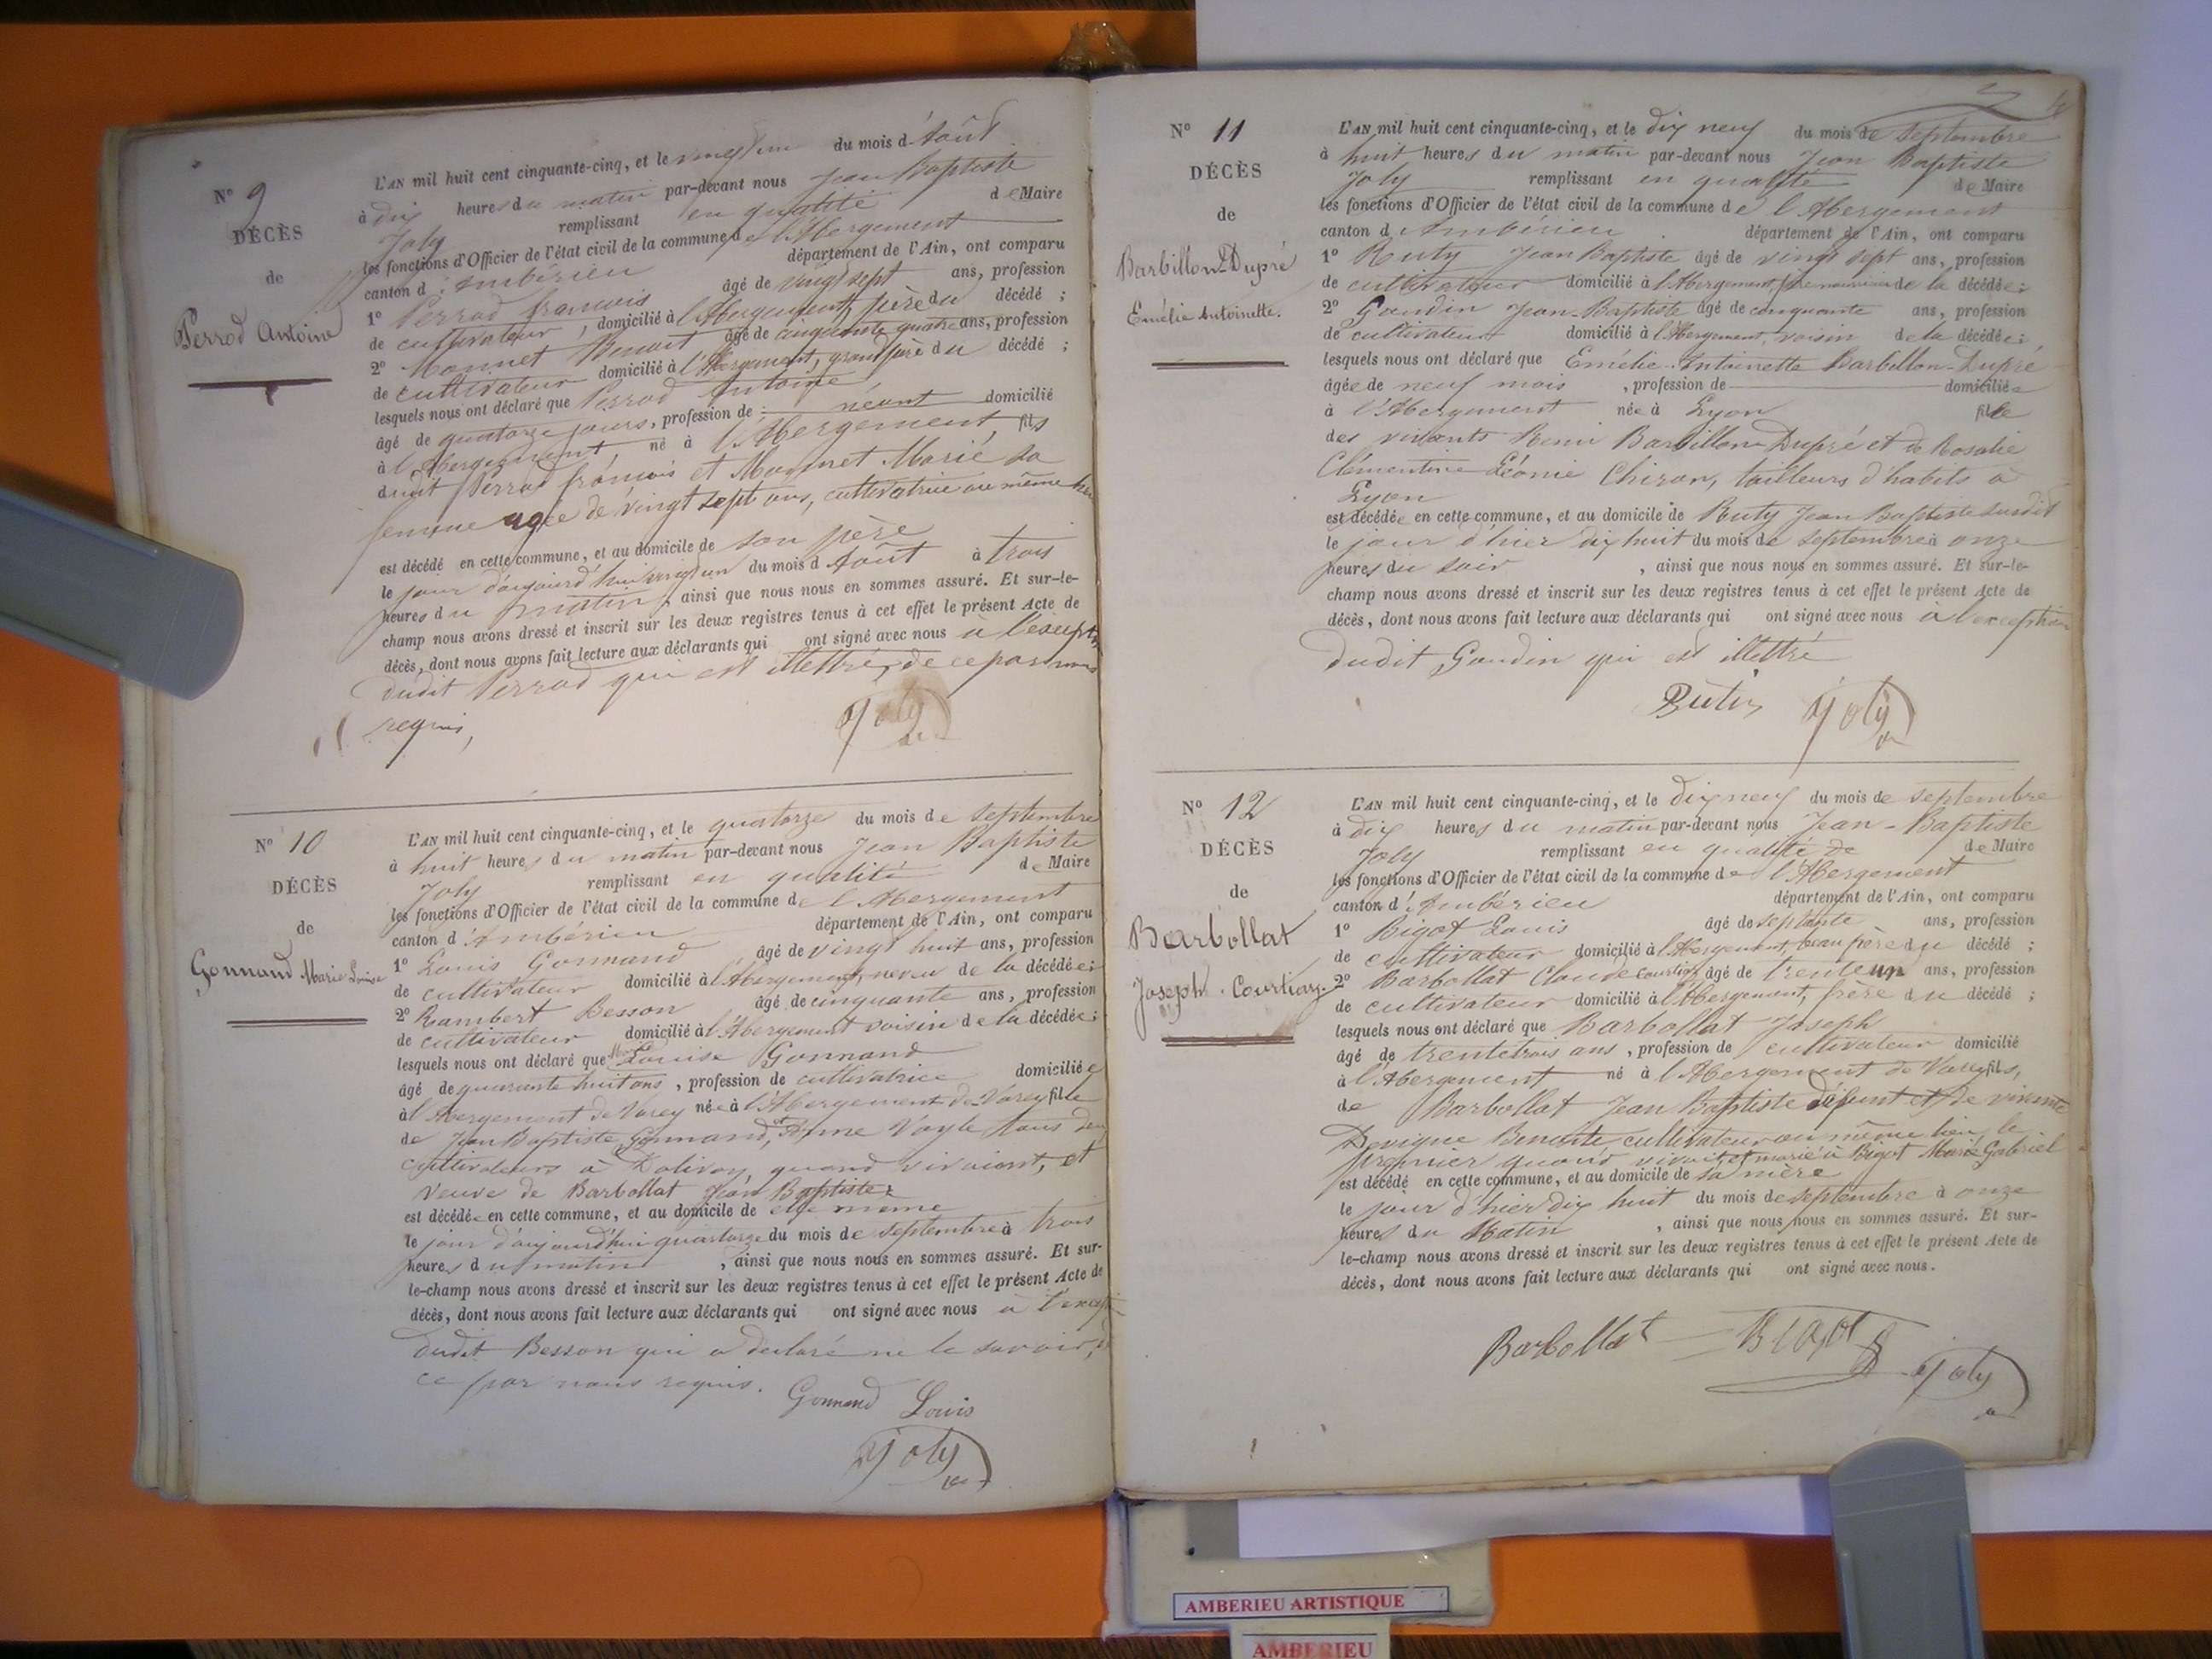 N° 9
DÉCÈS
de
Perrod Antoine
L'AN mil huit cent cinquante-cinq, et le vingt un du mois d'Août
à dix heures du matin par-devant nous Jean Baptiste
Joly remplissant en qualité de Maire
les fonctions d'Officier de l'état civil de la commune de l'Abergement
canton d'Ambérieu département de l'Ain, ont comparu
1° Perrod françois âgé de vingt sept ans, profession
de cultivateur, domicilié à l'Abergement, père du décédé ;
2° Monnet Benoit âgé de cinquante quatre ans, profession
de cultivateur domicilié à l'Abergement, grand père du décédé ;
lesquels nous ont déclaré que Perrod Antoine
âgé de quatorze jours, profession de : néant domicilié
à l'Abergement, né à l'Abergement, fils
dudit Perrod françois et Monnet Marie sa
femme agée de vingt sept ans, cultivatrice au même lieu
est décédé en cette commune, et au domicile de son père
le jour d'aujourd'hui vingt un du mois d'Août à trois
heures du matin, ainsi que nous nous en sommes assuré. Et sur-le-
champ nous avons dressé et inscrit sur les deux registres tenus à cet effet le présent Acte de
décès, dont nous avons fait lecture aux déclarants qui ont signé avec nous à l'exception
dudit Perrod qui est illettré, de ce par nous
requis,
Joly
N° 10
DÉCÈS
de
Gonnand Marie Louise
L'AN mil huit cent cinquante-cinq, et le quatorze du mois de septembre
à huit heures du matin par-devant nous Jean Baptiste
Joly remplissant en qualité de Maire
les fonctions d'Officier de l'état civil de la commune de l'Abergement
canton d'Ambérieu département de l'Ain, ont comparu
1° Louis Gonnand âgé de vingt huit ans, profession
de cultivateur domicilié à l'Abergement, neveu de la décédée ;
2° Rambert Besson âgé de cinquante ans, profession
de cultivateur domicilié à l'Abergement voisin de la décédée ;
lesquels nous ont déclaré que Marie Louise Gonnand
âgé de quarante huit ans, profession de cultivatrice domiciliée
à l'Abergement de Varey née à l'Abergement de Varey fille
de Jean Baptiste Gonnand, et Anne Vayle tous deux
cultivateurs à quand vivaient, et
veuve de Barbollat Jean Baptiste
est décédée en cette commune, et au domicile de elle même
le jour d'aujourd'hui quatorze du mois de septembre à trois
heures du matin, ainsi que nous nous en sommes assuré. Et sur-
le-champ nous avons dressé et inscrit sur les deux registres tenus à cet effet le présent Acte de
décès, dont nous avons fait lecture aux déclarants qui ont signé avec nous à l'except
dudit Besson qui a déclaré ne le savoir, de
ce par nous requis.
Gonnand Louis
Joly
N° 11
DÉCÈS
de
Barbillon-Dupré
Emélie Antoinette.
L'AN mil huit cent cinquante-cinq, et le dix neuf du mois de septembre
à huit heures du matin par-devant nous Jean Baptiste
Joly remplissant en qualité de Maire
les fonctions d'Officier de l'état civil de la commune de l'Abergement
canton d'Ambérieu département de l'Ain, ont comparu
1° Ruty Jean Baptiste âgé de vingt sept ans, profession
de cultivateur domicilié à l'Abergement, père nourricier de la décédée ;
2° Gaudin Jean-Baptiste âgé de cinquante ans, profession
de cultivateur domicilié à l'Abergement, voisin de la décédée ;
lesquels nous ont déclaré que Emélie-Antoinette Barbillon-Dupré
âgée de neuf mois, profession de domiciliée
à l'Abergement née à Lyon fille
des vivants Remi Barbillon-Dupré et de Rosalie
Clémentine Léonie Chiron, tailleurs d'habits à
Lyon
est décédée en cette commune, et au domicile de Ruty Jean Baptiste susdit
le jour d'hier dix huit du mois de septembre à onze
heures du soir, ainsi que nous nous en sommes assuré. Et sur-le-
champ nous avons dressé et inscrit sur les deux registres tenus à cet effet le présent Acte de
décès, dont nous avons fait lecture aux déclarants qui ont signé avec nous à l'exception
dudit Gaudin qui est illettré
Joly
N° 12
DÉCÈS
de
Barbollat
Joseph
L'AN mil huit cent cinquante-cinq, et le dix neuf du mois de septembre
à dix heures du matin par-devant nous Jean-Baptiste
Joly remplissant en qualité de de Maire
les fonctions d'Officier de l'état civil de la commune de l'Abergement
canton d'Ambérieu département de l'Ain, ont comparu
1° Bigot Louis âgé de septante ans, profession
de cultivateur domicilié à l'Abergement, beau père du décédé ;
2° Barbollat Claude âgé de trente un ans, profession
de cultivateur domicilié à l'Abergement, frère du décédé ;
lesquels nous ont déclaré que Barbollat Joseph
âgé de trente trois ans, profession de cultivateur domicilié
à l'Abergement né à l'Abergement de Varey fils,
de Barbollat Jean Baptiste défunt et de vivante
Benoite cultivateur au même lieu le
premier quand vivait, et marié à Bigot Marie Gabriel
est décédé en cette commune, et au domicile de sa mère
le jour d'hier dix huit du mois de septembre à onze
heures du Matin, ainsi que nous nous en sommes assuré. Et sur-
le-champ nous avons dressé et inscrit sur les deux registres tenus à cet effet le présent Acte de
décès, dont nous avons fait lecture aux déclarants qui ont signé avec nous.
Barbollat Bigot
Joly
AMBERIEU ARTISTIQUE
AMBERIEU